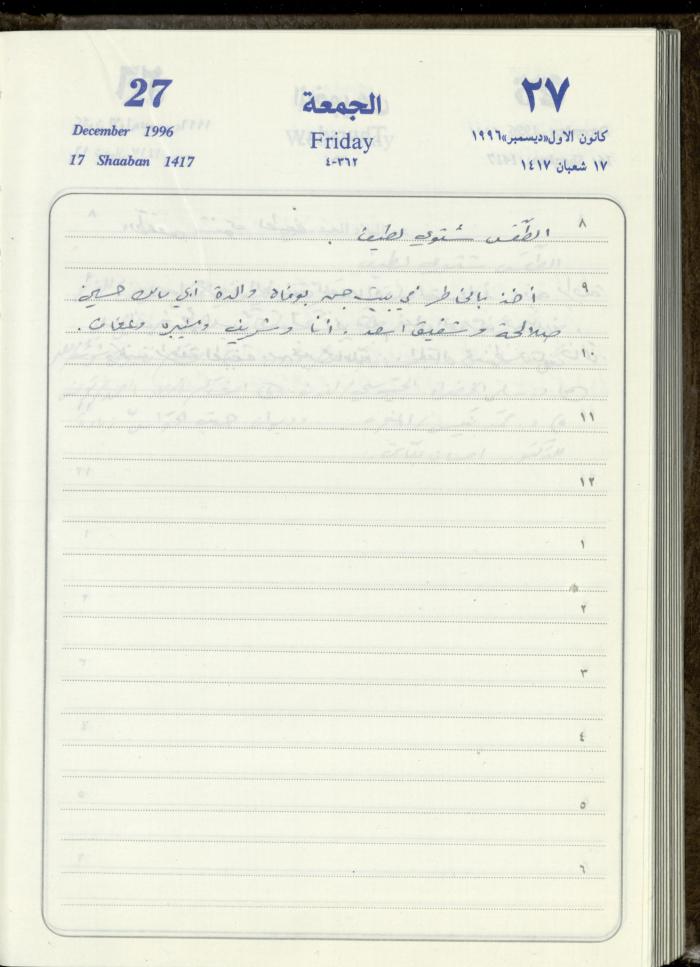 27
December 1996
17 Shaaban 1417
الجمعة
Friday
٣٦٢-٤
٢٧
كانون الاول«ديسمبر»١٩٩٦
١٧ شعبان ١٤١٧
٨
الطقس شتوي لطيف.
٩
أخذ بالخاطر في بيت جن بوفاة والدة حسين
صلالحة وشفيق اسعد. أنا وشريف ومنيره وعفاف.
١٠
١١
١٢
١
٢
٣
٤
٥
٦